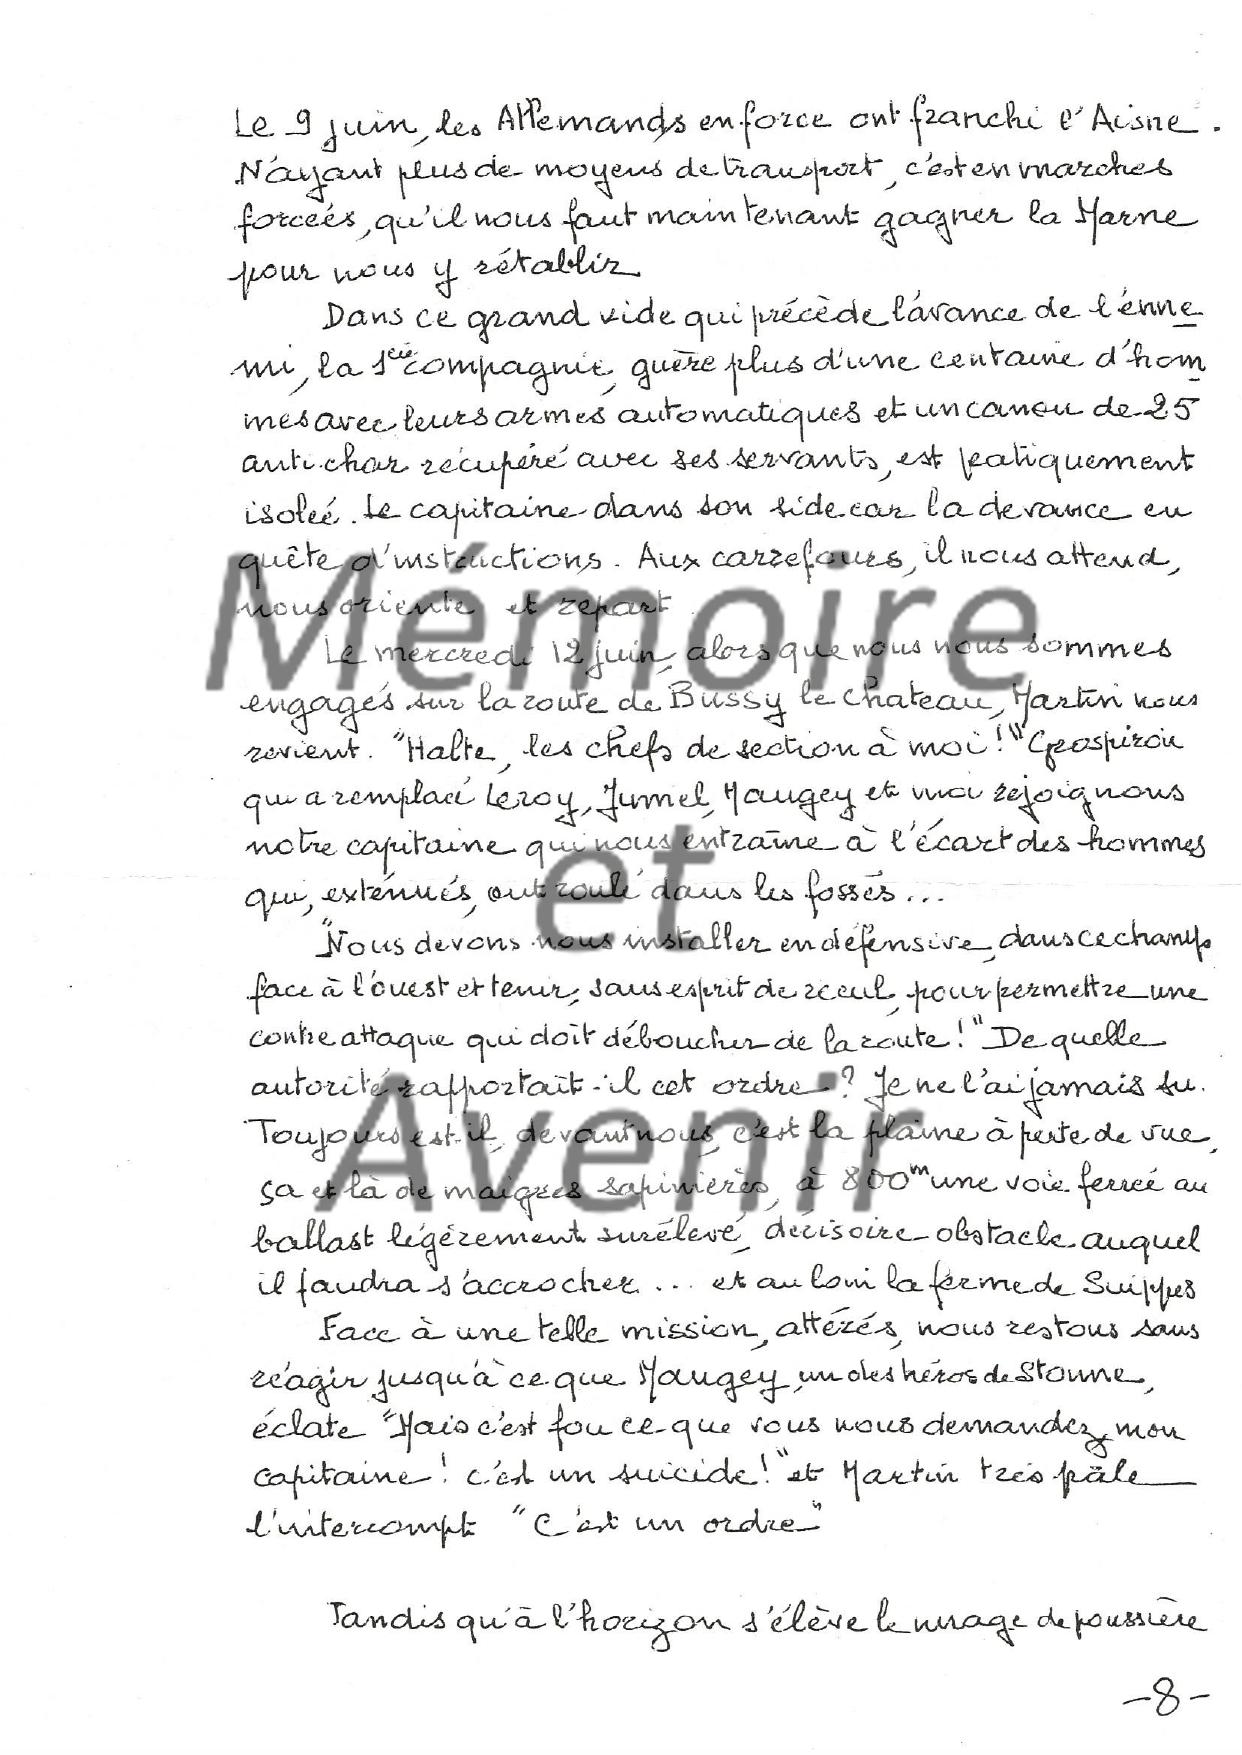 Le 9 juin, les Allemands en force ont franchi l'Aisne.
N'ayant plus de moyens de transport, c'est en marches
forcées, qu'il nous faut maintenant gagner la Marne
pour nous y rétablir
Dans ce grand vide qui précède l'avance de l'enne
mi, la 1ère compagnie, guère plus d'une centaine d'hom
mes avec leurs armes automatiques et un canon de 25
anti.char récupéré avec ses servants, est patiquement
isolée. Le capitaine dans son side car la devance en
quête d'instructions. Aux carrefours, il nous attend,
nous oriente et repart.
Le mercredi 12 juin, alors que nous nous sommes
engagés sur la route de Bussy le Chateau, Martin nous
revient. "Halte, les chefs de section à moi!" Graspirou
qui a remplacé Leroy, Jumel, Maugey et moi rejoignons
notre capitaine qui nous entraîne à l'écart des hommes
qui, exténués, ont roulé dans les fossés...
"Nous devons nous installer en défensive, dans ce champ
face à l'ouest et tenir, sans esprit de recul, pour permettre une
contre attaque qui doit déboucher de la route!" De quelle
autorité rapportait-il cet ordre? Je ne l'ai jamais su.
Toujours est-il, devant nous, c'est la plaine à perte de vue,
ça et là de maigres sapinières, à 800m une voie ferrée au
ballast légèrement surélevé, dérisoire obstacle auquel
il faudra s'accrocher... et au loin la ferme de Suippes
Face à une telle mission, attérés, nous restons sans
réagir jusqu'à ce que Maugey, un des héros de Stonne,
éclate "Mais c'est fou ce que vous nous demandez, mon
capitaine! c'est un suicide!" et Martin très pâle
l'interrompt "C'est un ordre"
Tandis qu'à l'horizon s'élève le nuage de poussière
-8-
Mémoire
et
Avenir